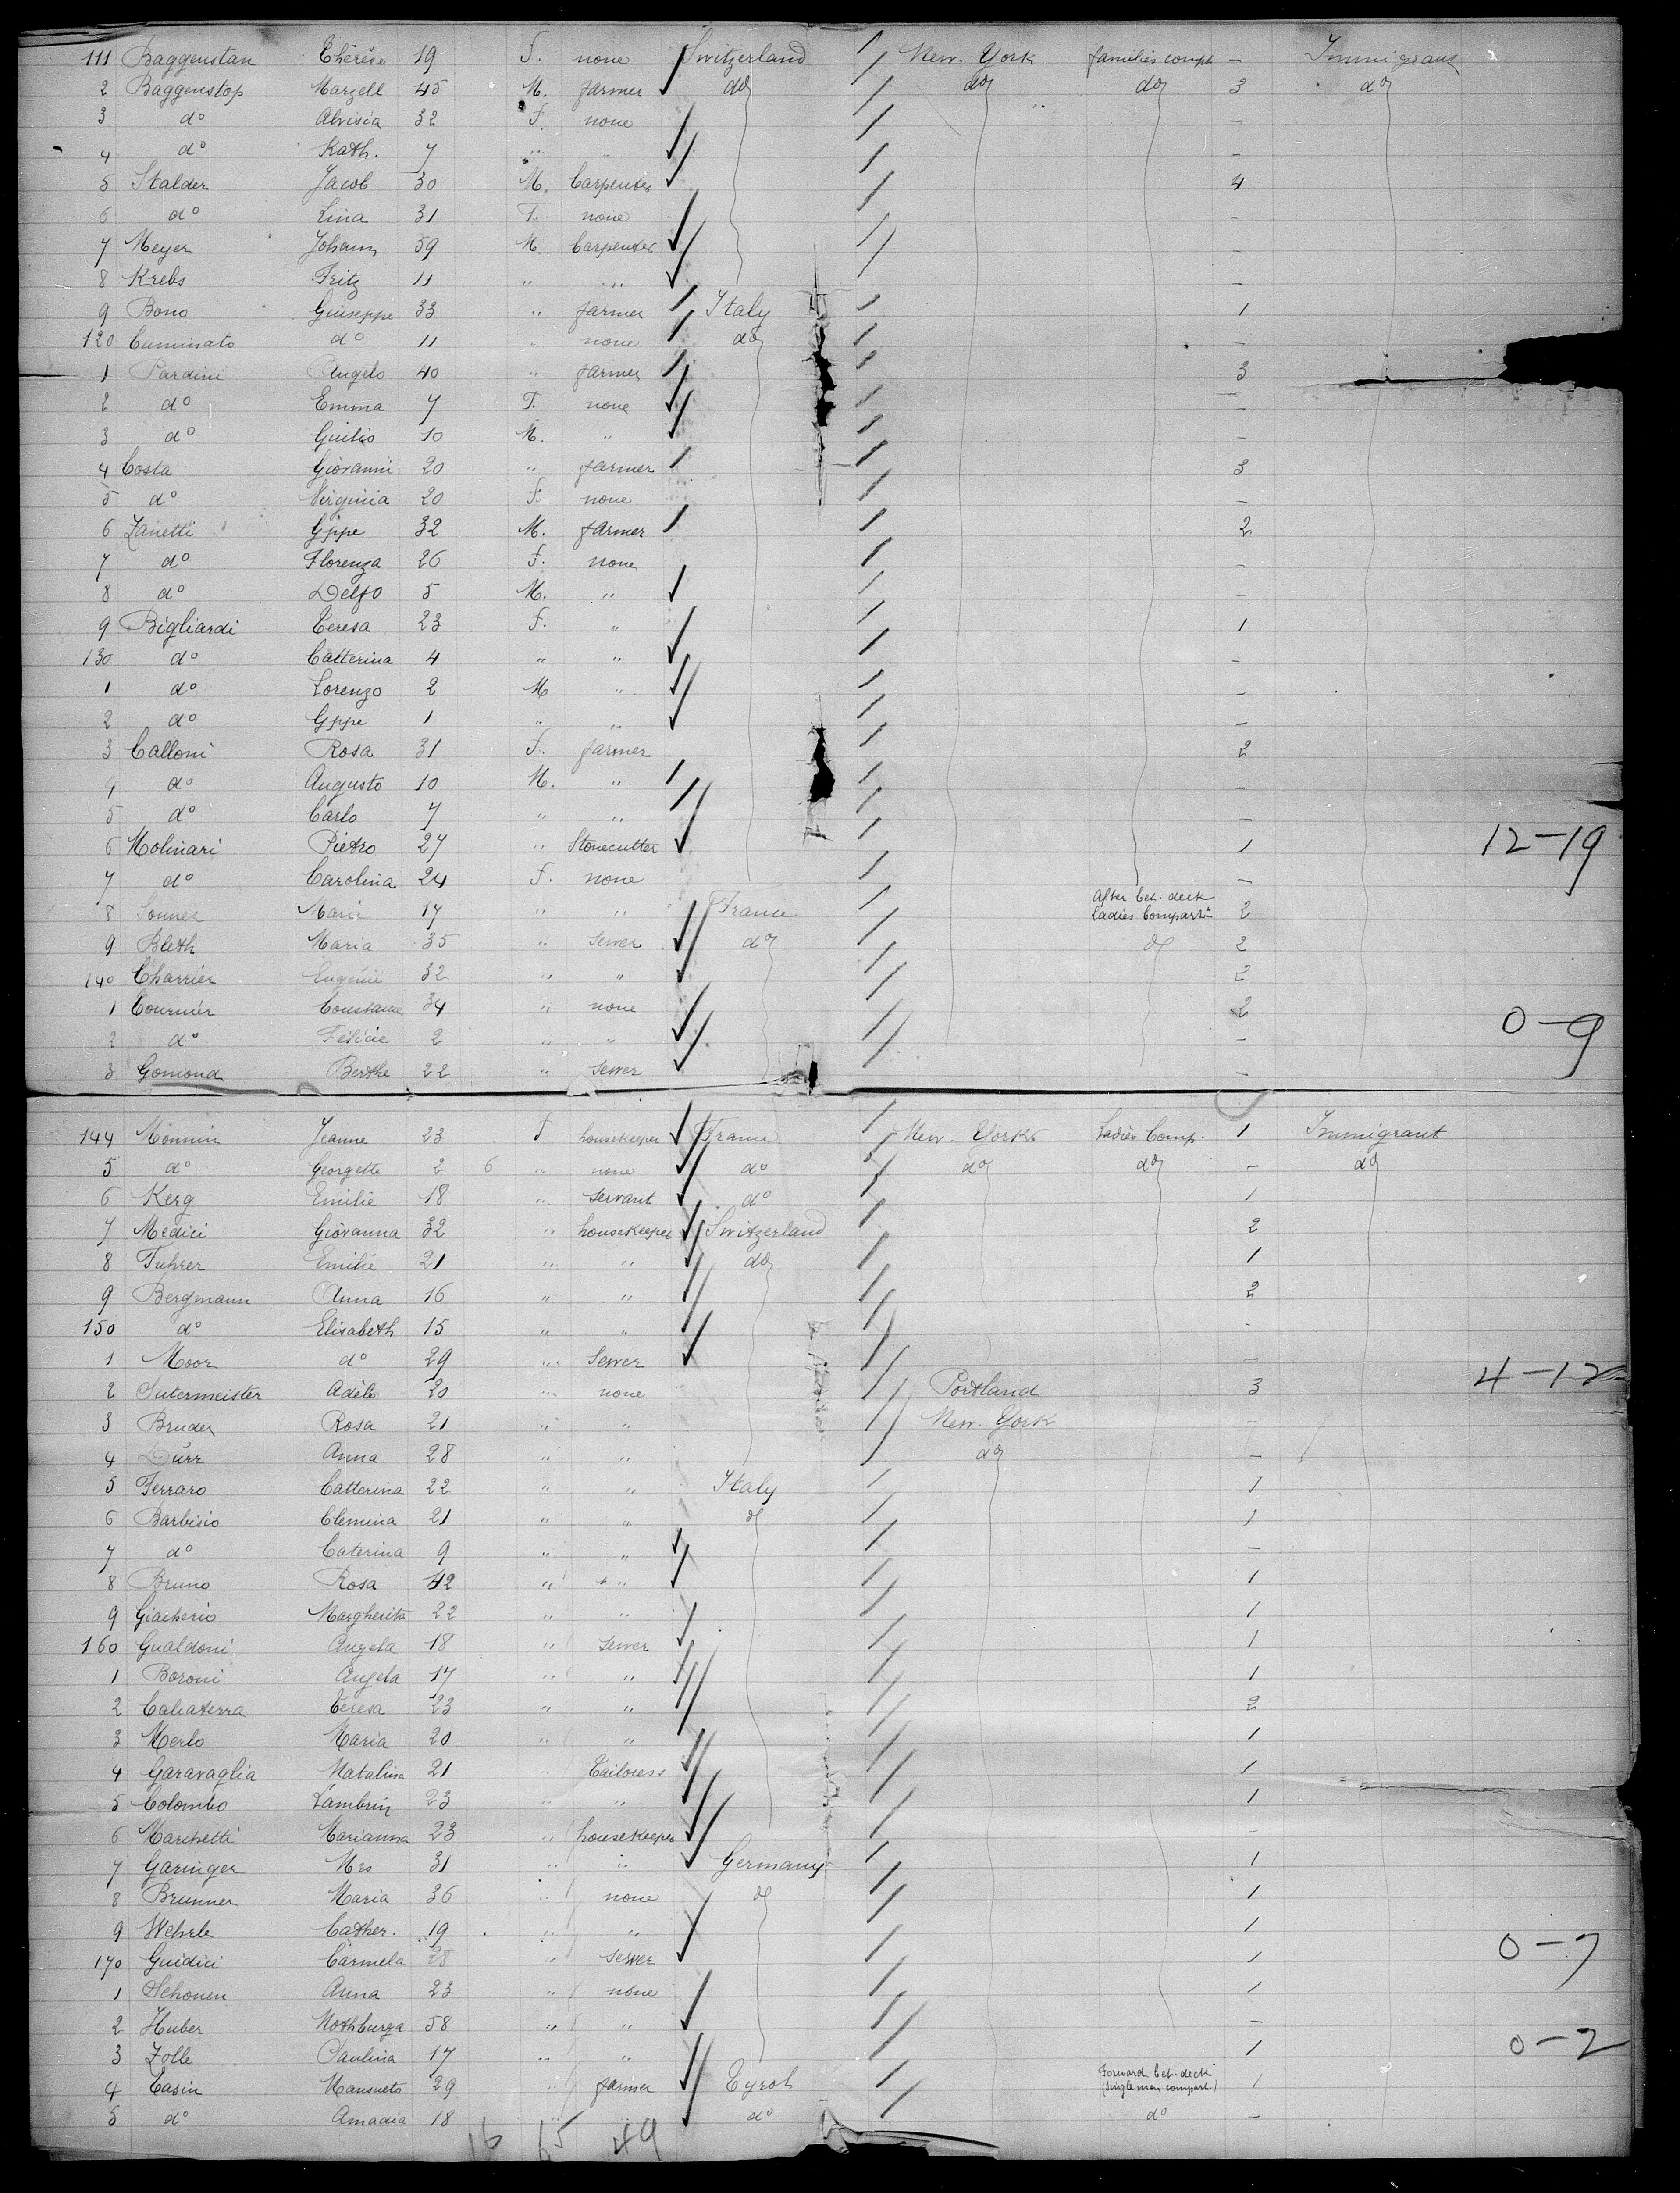 111 Baggenstan Thérèse 19 F. none Switzerland New. York families compt — Immigrant
2 Baggenstop Marzell 45 M. farmer do do do 3 do
3 do Alvisia 32 F. none —
4 do Kath. 7 " " —
5 Stalder Jacob 30 M. Carpenter 4
6 do Lina 31 F. none —
7 Meyer Johann 59 M. Carpenter —
8 Krebs Fritz 11 " " —
9 Bono Giuseppe 33 " farmer Italy 1
120 Cuminato do 11 " none do —
1 Pardini Angelo 40 " farmer 3
2 do Emma 7 F. none —
3 do Guilio 10 M. " —
4 Costa Giovanni 20 " farmer 3
5 do Virginia 20 F. none —
6 Zanetti Gppe 32 M. farmer 2
7 do Florenza 26 F. none —
8 do Delfo 5 M. " —
9 Bigliardi Teresa 23 F. " 1
130 do Catterina 4 " " —
1 do Lorenzo 2 M " —
2 do Gppe 1 " " —
3 Calloni Rosa 31 F. farmer 2
4 do Augusto 10 M. " —
5 do Carlo 7 " " —
6 Molinari Pietro 27 " Stonecutter 1 12-19
7 do Carolina 24 F. none —
8 Marie 17 " " France After bet. deck Ladies Compart. 2
9 Bleth Maria 35 " sewer do do 2
140 Charrier Eugénie 32 " " 2
1 Tournier Constance 34 " none 2 0-9
2 do Félicie 2 " " —
3 Gomond Berthe 22 " sewer —
144 Monnin Jeanne 23 F housekeeper France New. York Ladies Comp. 1 Immigrant
5 do Georgette 2 6 " none do do do — do
6 Kerg Emilie 18 " servant do 1
7 Medici Giovanna 32 " housekeeper Switzerland 2
8 Fuhrer Emilie 21 " " do 1
9 Bergmann Anna 16 " " 2
150 do Elisabeth 15 " " -
1 Moor do 29 " Sewer — 4-12
2 Sutermeister Adèle 20 " none Portland 3
3 Bruder Rosa 21 " " New. York —
4 Dürr Anna 28 " " do —
5 Ferraro Catterina 22 " " Italy 1
6 Barbisio Clemina 21 " " do 1
7 do Caterina 9 " " —
8 Bruno Rosa 42 " " 1
9 Giacherio Margherita 22 " " 1
160 Gualdoni Angela 18 " Sewer 1
1 Boroni Angela 17 " " 1
2 Calcaterra Teresa 23 " " 2
3 Merlo Maria 20 " " 1
4 Garavaglia Natalina 21 " Tailoress 1
5 Colombo 23 " " 1
6 Marchetti Marianna 23 " housekeeper —
7 Garinger Mrs 31 " " Germany 1
8 Brunner Maria 36 " none do 1
9 Wehrle Cather. 19 " " 1
170 Guidici Carmela 28 " sewer 1 0-7
1 Schonen Anna 23 " none 1
2 Huber Nothburga 58 " " —
3 Zolle Paulina 17 " " 1 0-2
4 Casin Mansueto 29 " farmer Tyrol Forward bet. deck (single men compart.) 1
5 do Amadia 18 " " do do —
16 65 49